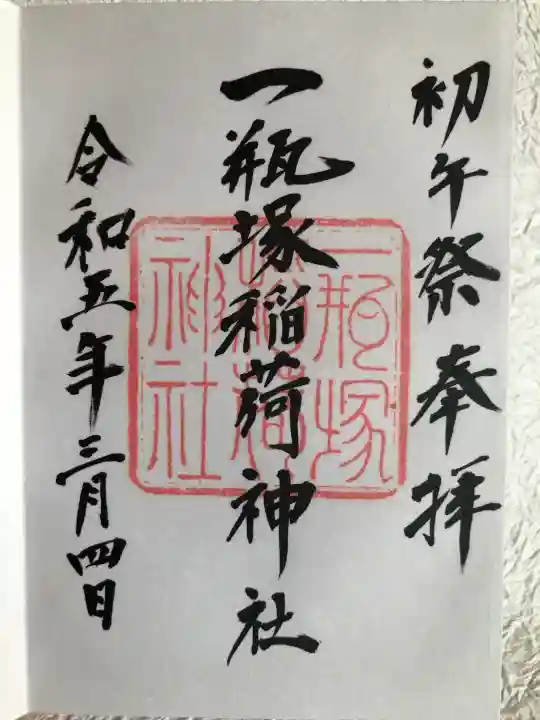 初午祭奉拝
一瓶塚稲荷神社
令和五年三月四日
一瓶塚
稲荷
神社